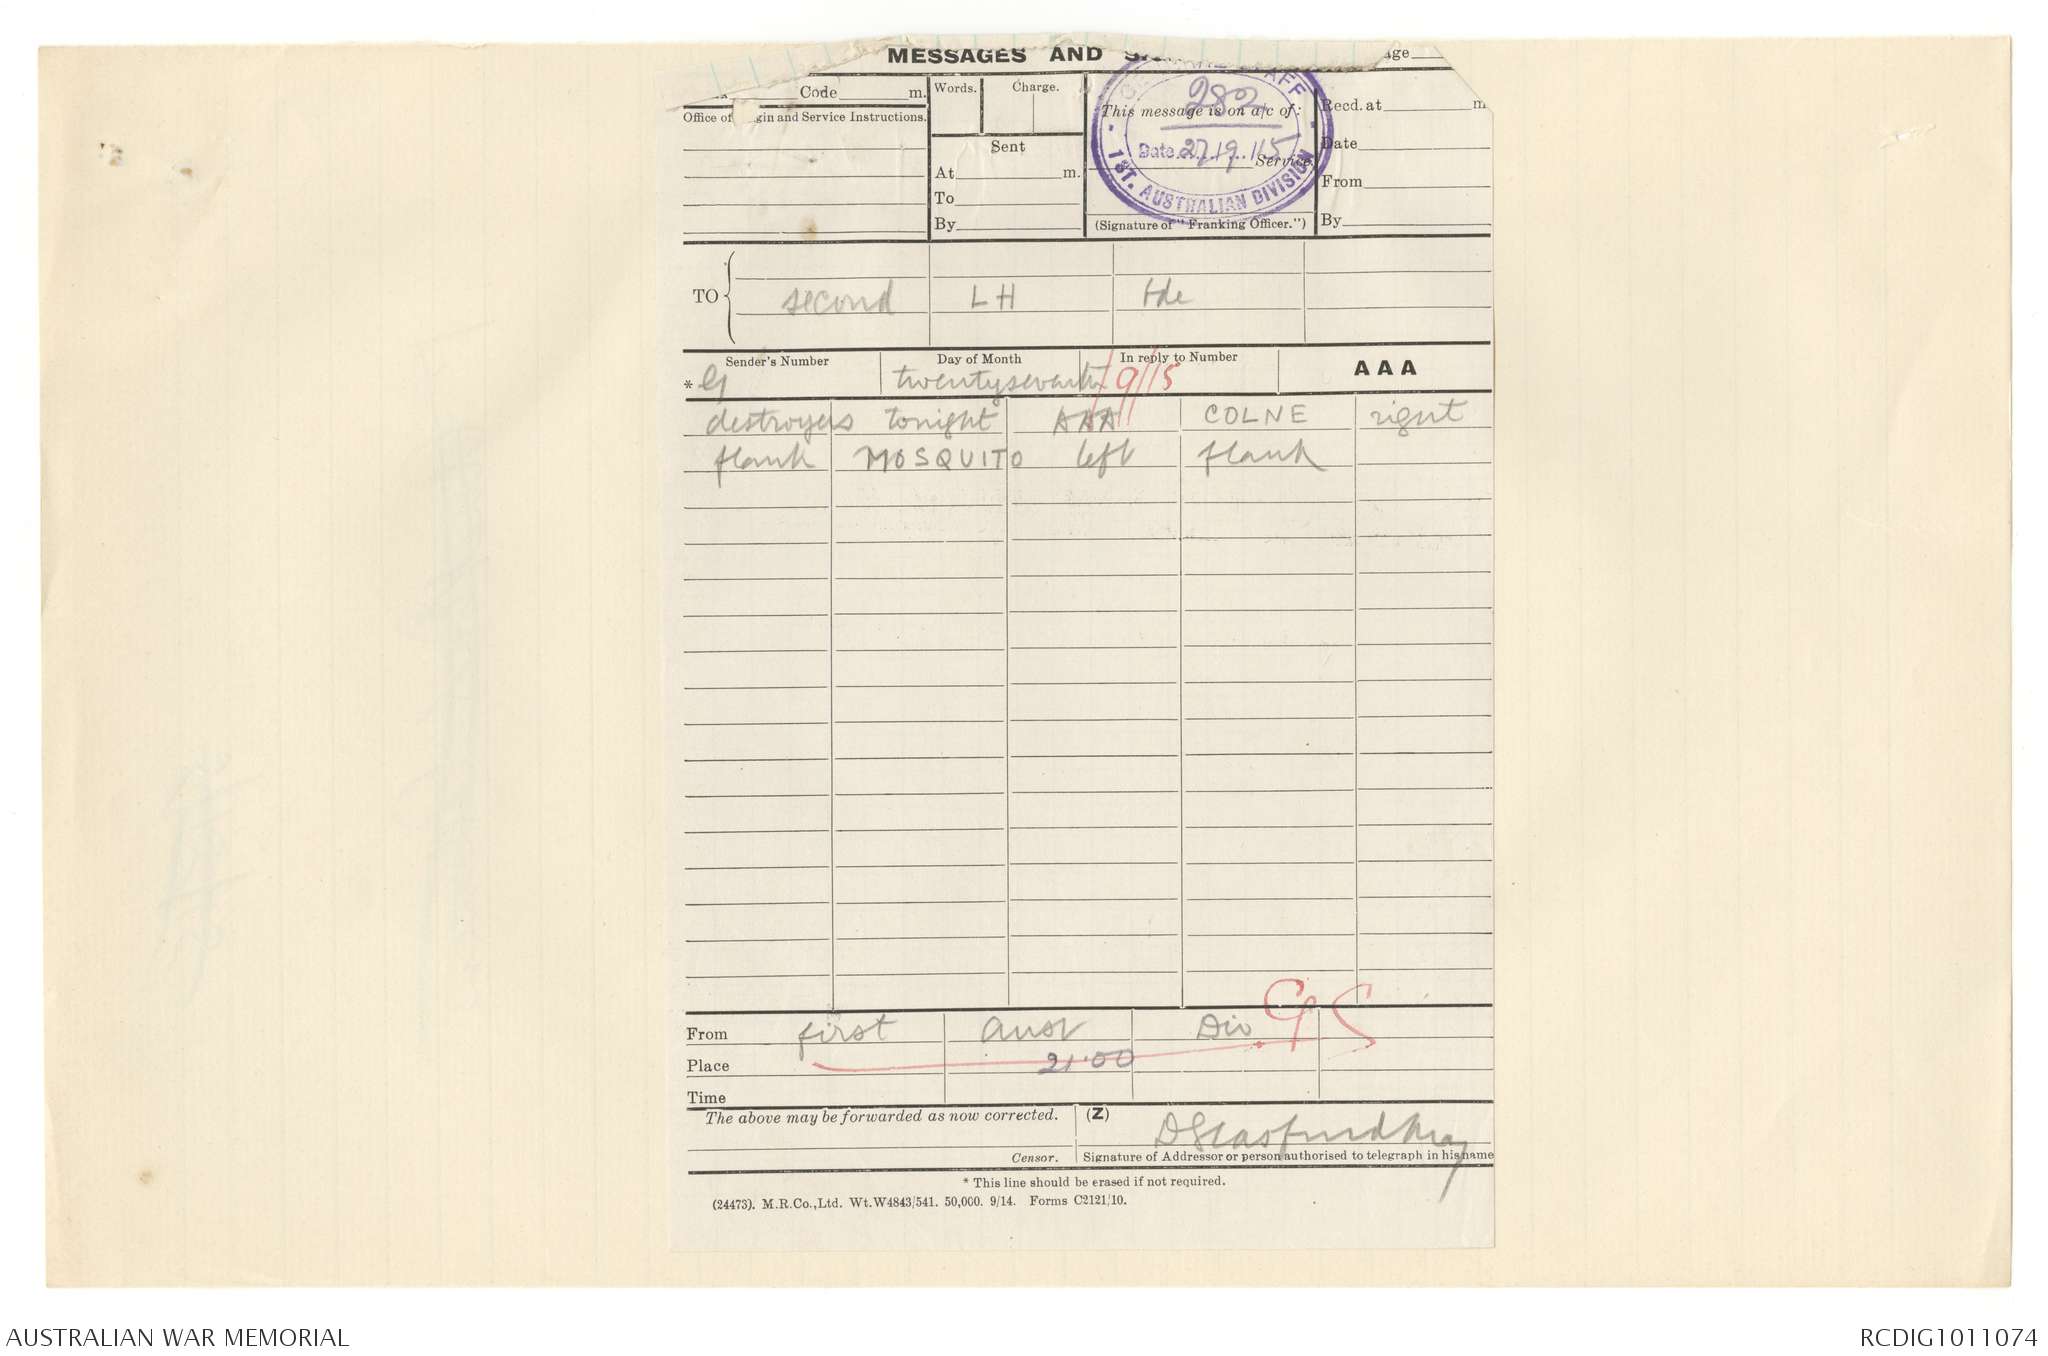 MESSAGES AND
Code m.
Words. Charge.
This message is on a/c of:
Recd. at m
Office of and Service Instructions.
Sent
Date
At m.
Service.
From
To
By
(Signature of "Franking Officer.")
By
282
Date 27.9.15
1ST. AUSTRALIAN DIVISION
TO second LH Hde
Sender's Number Day of Month In reply to Number AAA
* G twentyseventh /9/15
destroyers tonight AAA COLNE right
flank MOSQUITO left flank
GS
From first Aust Div
Place 21.00
Time
The above may be forwarded as now corrected. (Z)
Censor. Signature of Addressor or person authorised to telegraph in his name
* This line should be erased if not required.
(24473). M.R.Co.,Ltd. Wt.W4843/541. 50,000. 9/14. Forms C2121/10.
AUSTRALIAN WAR MEMORIAL RCDIG1011074